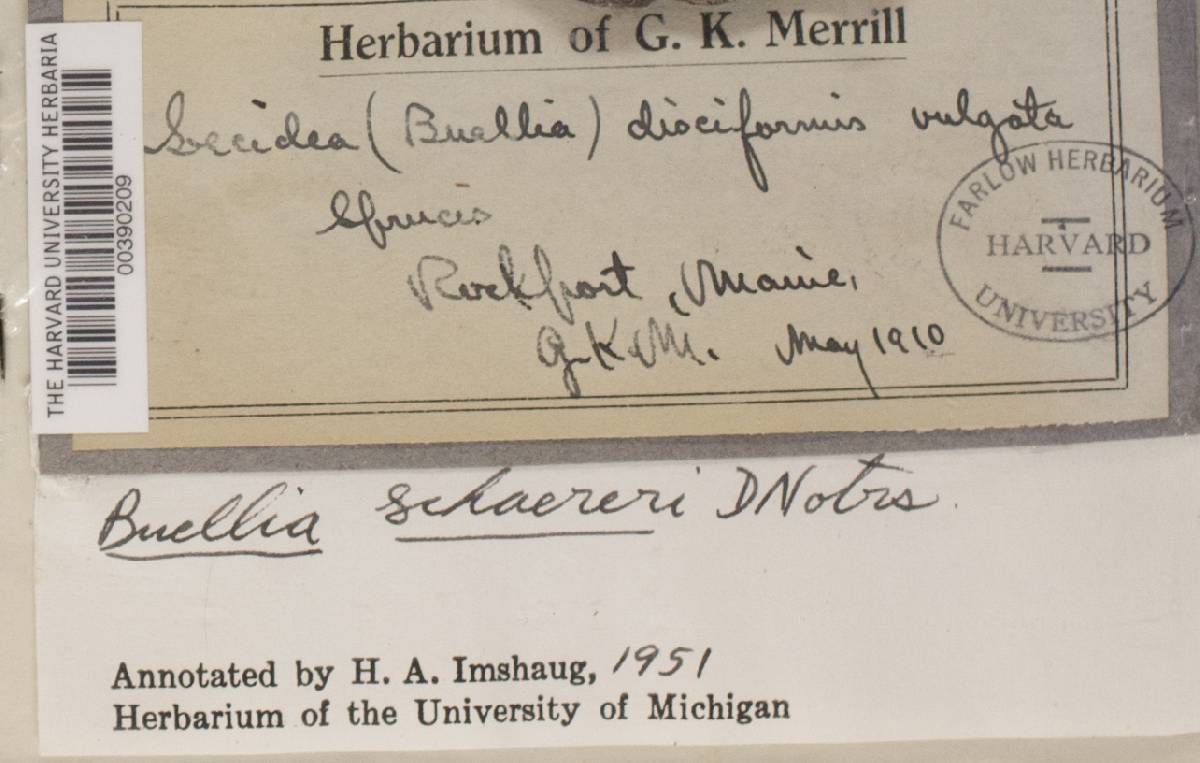 Herbarium of G. K. Merrill
Lecidea (Buellia) disciformis vulgata
Spruces
Rockport, Maine,
G.K.M. May 1910
FARLOW HERBARIUM
HARVARD
UNIVERSITY
THE HARVARD UNIVERSITY HERBARIA
00390209
Buellia schaereri DNotrs.
Annotated by H. A. Imshaug, 1951
Herbarium of the University of Michigan